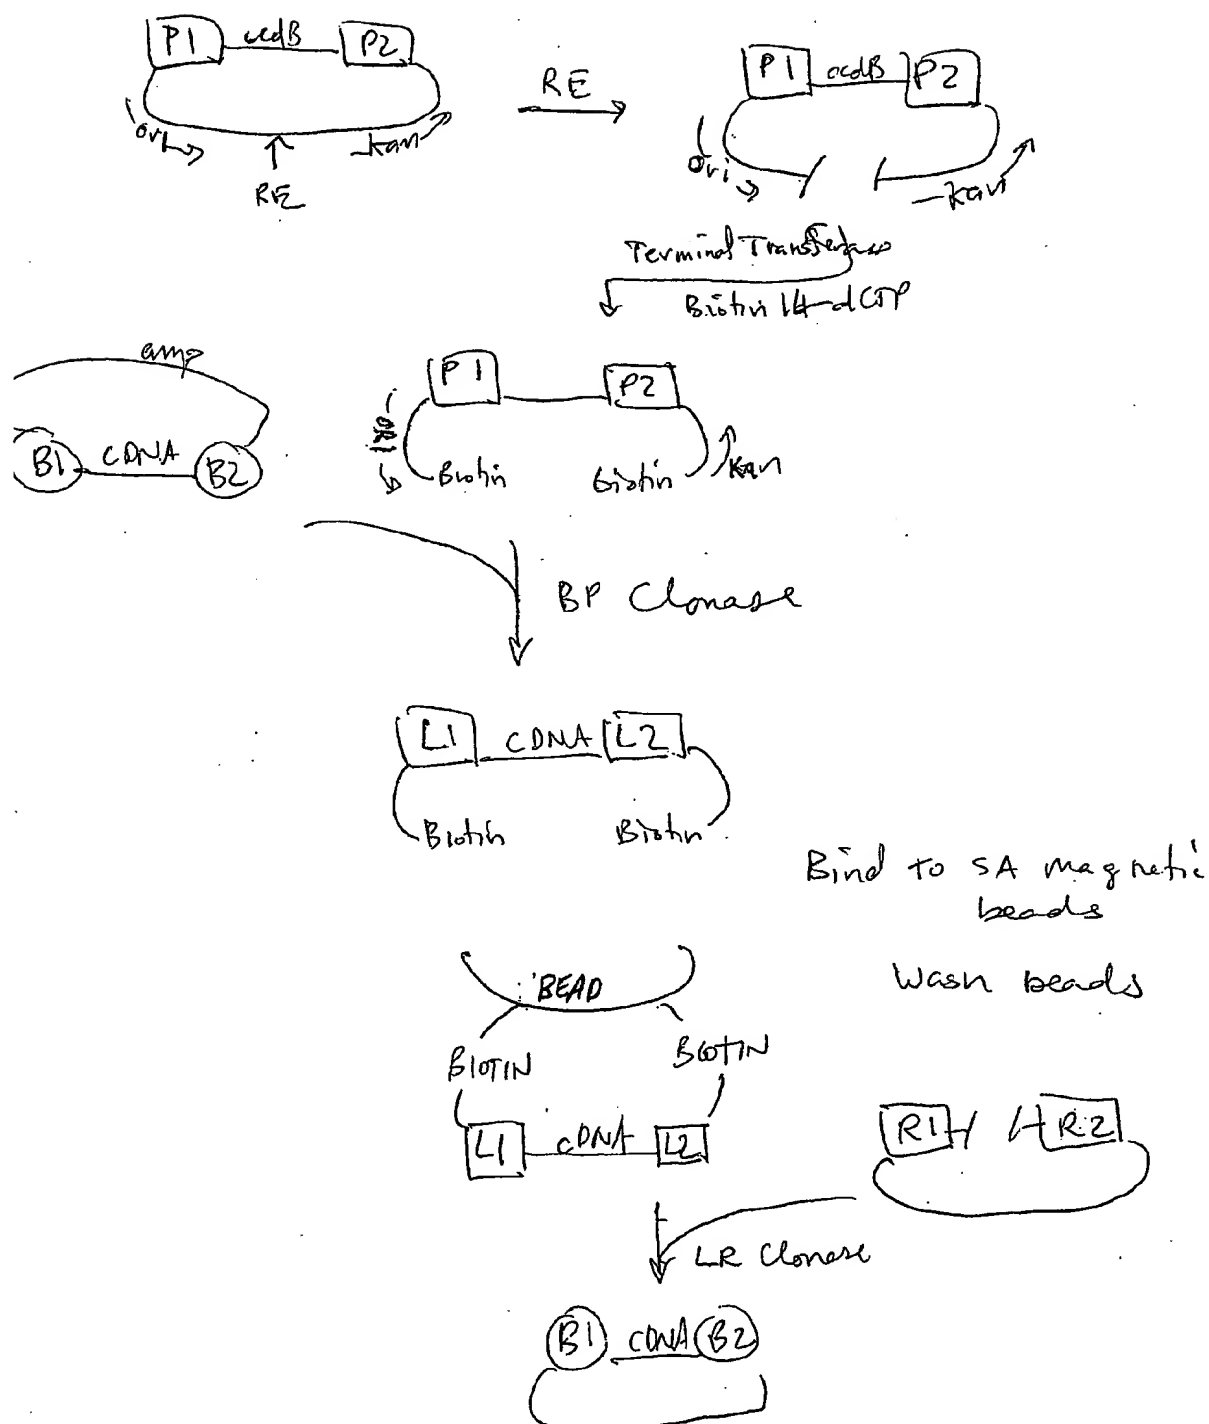 P1 ccdB P2
ori kan
RE
RE
P1 ccdB P2
Ori kan
Terminal Transferase
Biotin 14-dCTP
amp
B1 CDNA B2
P1 P2
ORI Biotin Biotin Kan
BP Clonase
L1 CDNA L2
Biotin Biotin
Bind to SA magnetic
beads
Wash beads
BEAD
BIOTIN BIOTIN
L1 cDNA L2
R1 R2
LR Clonase
B1 CDNA B2